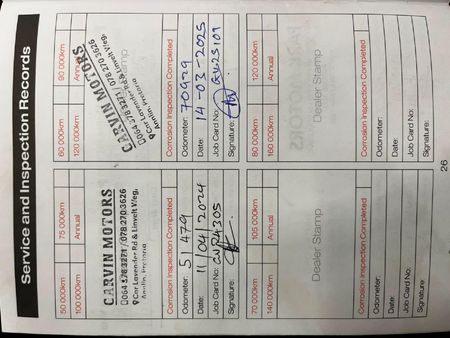 Service and Inspection Records
50 000km 75 000km
100 000km Annual
CARVIN MOTORS
064 578 3271 / 078 270 3626
Cor Lavender Rd & Linvelt Weg,
Annlin, Pretoria
Corrosion Inspection Completed
Odometer: 51 479
Date: 11/04/2024
Job Card No:
Signature:
60 000km 90 000km
120 000km Annual
CARVIN MOTORS
064 578 3271 / 078 270 3626
Cor Lavender Rd & Linvelt Weg,
Annlin, Pretoria
Corrosion Inspection Completed
Odometer: 70929
Date: 14-03-2025
Job Card No:
Signature:
70 000km 105 000km
140 000km Annual
Dealer Stamp
Corrosion Inspection Completed
Odometer:
Date:
Job Card No:
Signature:
80 000km 120 000km
160 000km Annual
Dealer Stamp
Corrosion Inspection Completed
Odometer:
Date:
Job Card No:
Signature:
26